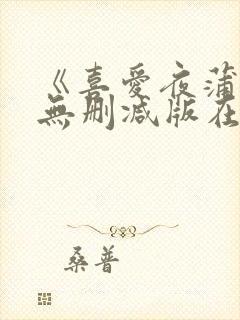 《喜愛夜蒲
無刪減版在
桑普